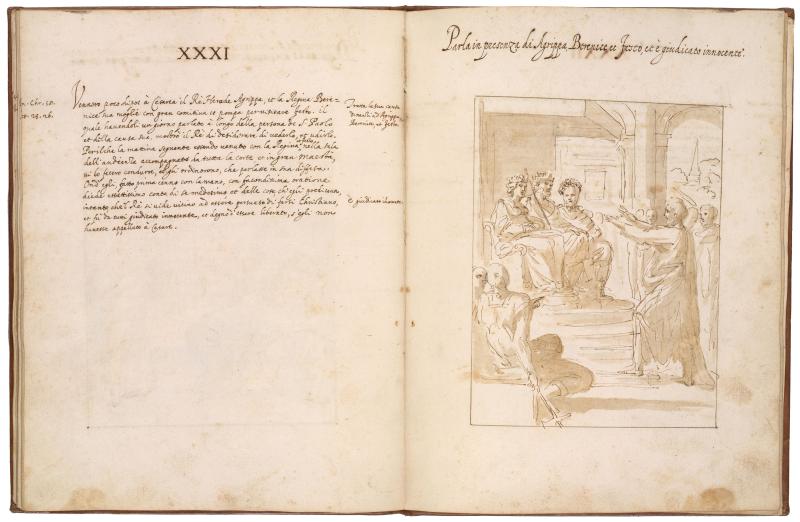 XXXI
Vennero poco dipoi à Cesarea il Rè Herode Agrippa, et la Regina Bere-
nice sua moglie con gran comitiua et pompa per uisitare Festo. il
quale hauendoli un giorno parlato à longo della persona de S. Paolo
et della causa sua, mostrò il Rè di desiderare di uederlo, et udirlo.
Perilche la mattina seguente essendo uenuto con la Regina nella sala
dell'audienza accompagnato da tutta la corte et in gran maestà,
ui lo fecero condurre, et gli ordinorono, che parlasse in sua difesa.
Ond' egli fatto prima cenno con la mano, con facondissima oratione
diede esattissimo conto di se medesimo et delle cose ch'egli predicaua,
intanto che'l Rè si uide uicino ad essere persuaso di farsi Christiano,
et fù da tutti giudicato innocente, et degno d'essere liberato, s'egli non
hauesse appellato à Cesare.
An. Chr. 58.
25. 26.
Tratta la sua causa
dinanzi ad Agrippa
Berenice, et Festo.
È giudicato innocente.
Parla in presenza di Agrippa Berenice, et Festo, et è giudicato innocente.